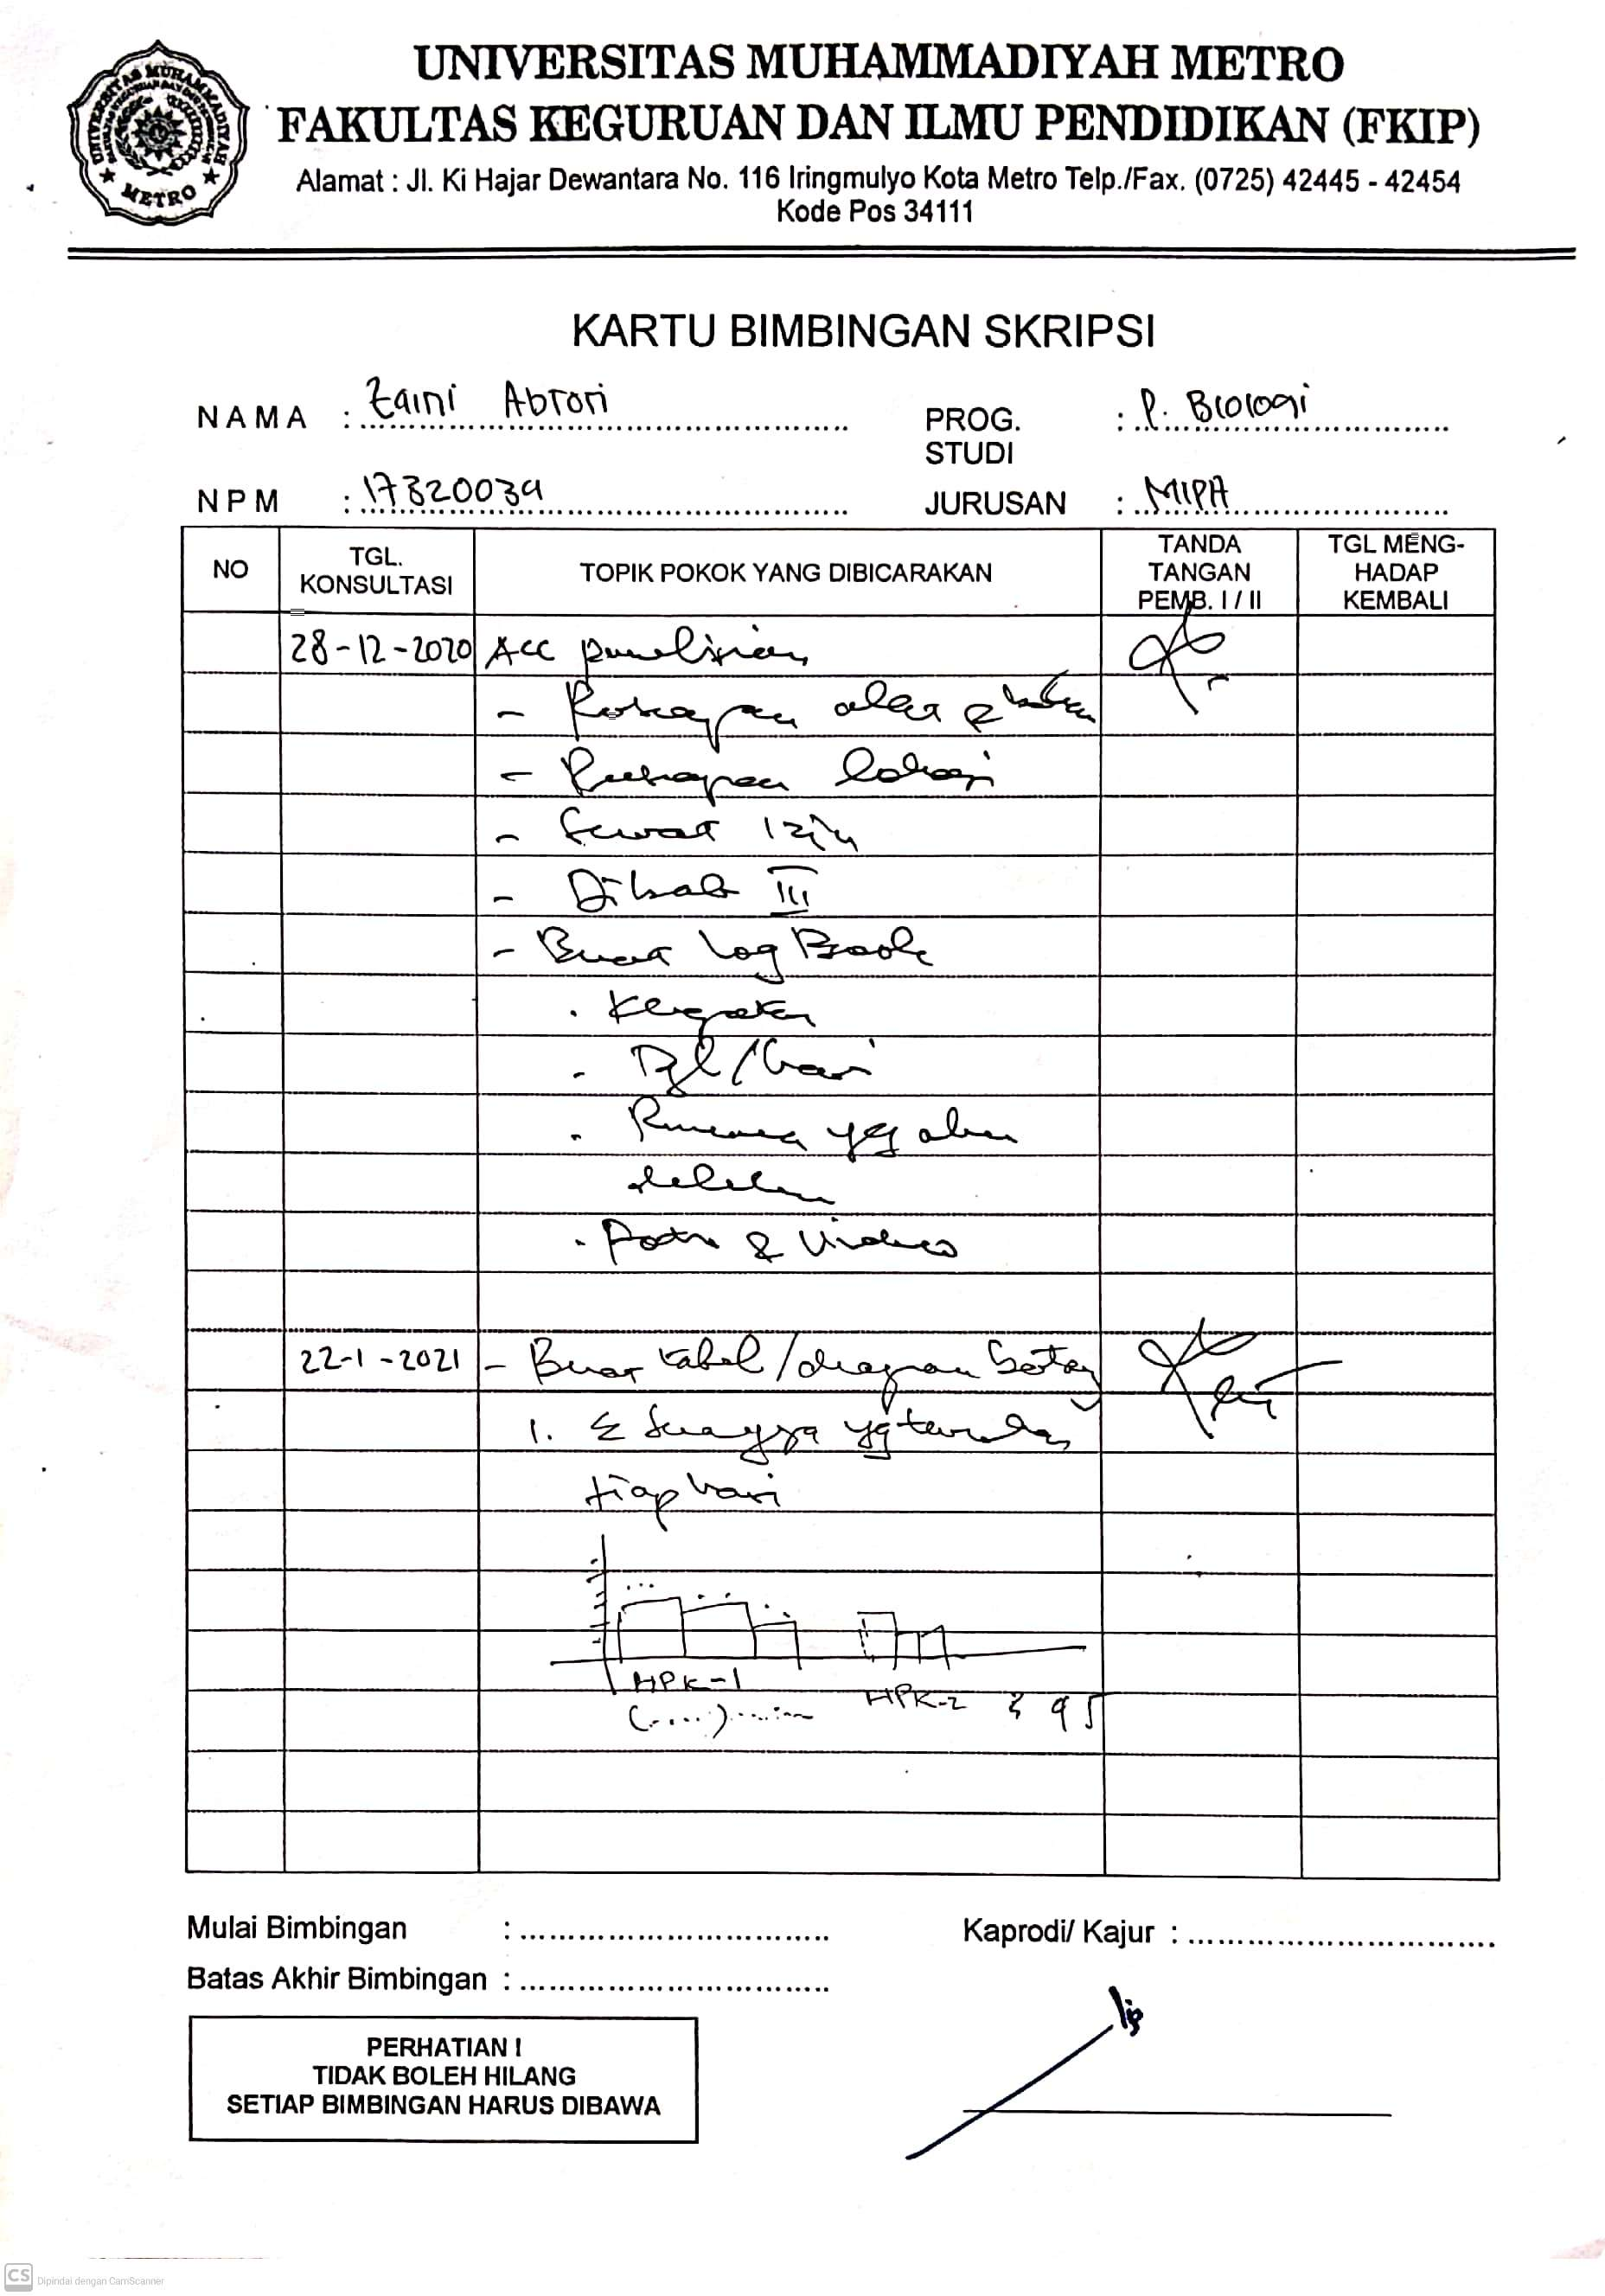 UNIVERSITAS MUHAMMADIYAH METRO
FAKULTAS KEGURUAN DAN ILMU PENDIDIKAN (FKIP)
Alamat : Jl. Ki Hajar Dewantara No. 116 Iringmulyo Kota Metro Telp./Fax. (0725) 42445 - 42454
Kode Pos 34111
UNIVERSITAS MUHAMMADIYAH
METRO
KARTU BIMBINGAN SKRIPSI
NAMA : Zaini Abrori
PROG. STUDI : P. Biologi
NPM : 17320039
JURUSAN : MIPA
NO
TGL. KONSULTASI
TOPIK POKOK YANG DIBICARAKAN
TANDA TANGAN PEMB. I / II
TGL MENG-HADAP KEMBALI
28-12-2020 Acc penelitian
- Persiapan alat & bahan
- Persiapan lokasi
- Surat izin
- Di bab III
- Buat log Book
. Kegiatan
- Tgl/hari
. Rencana yg akan
. Foto & Video
22-1-2021 - Buat tabel/diagram batang
1. Σ yg
tiap hari
HPK-1
(.....)......
HPK-2 3 4 5
Mulai Bimbingan : ..............................
Kaprodi/ Kajur : ..............................
Batas Akhir Bimbingan : ..............................
PERHATIAN !
TIDAK BOLEH HILANG
SETIAP BIMBINGAN HARUS DIBAWA
CS Dipindai dengan CamScanner